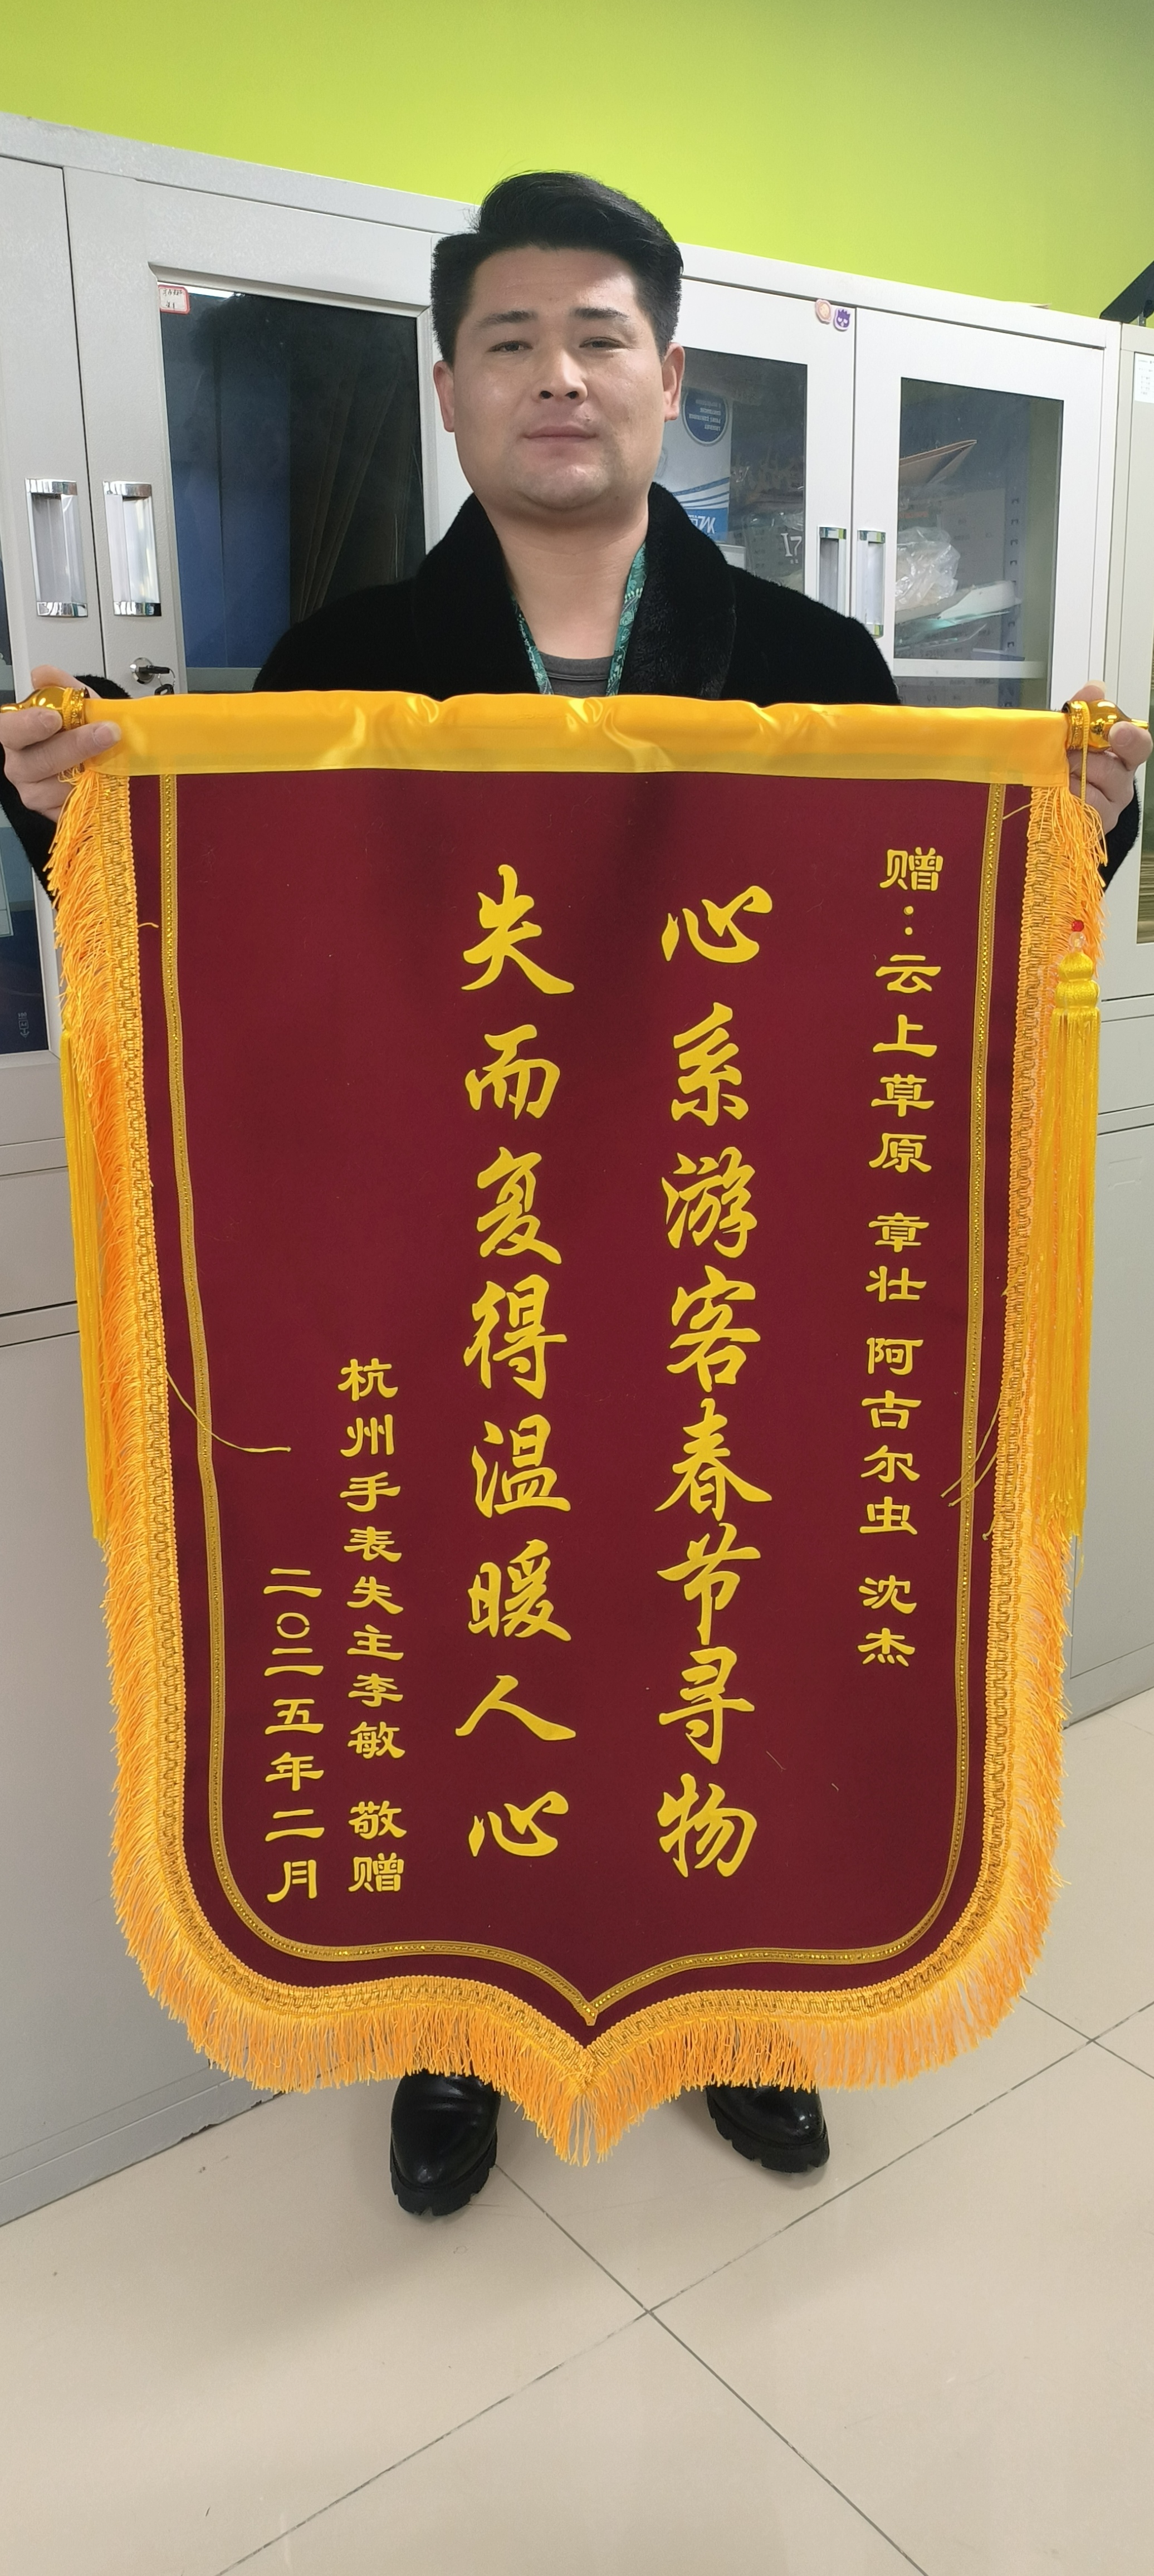 赠：云上草原 章壮 阿古尔虫 沈杰
心系游客春节寻物
失而复得温暖人心
杭州手表失主李敏 敬赠
二〇二五年二月